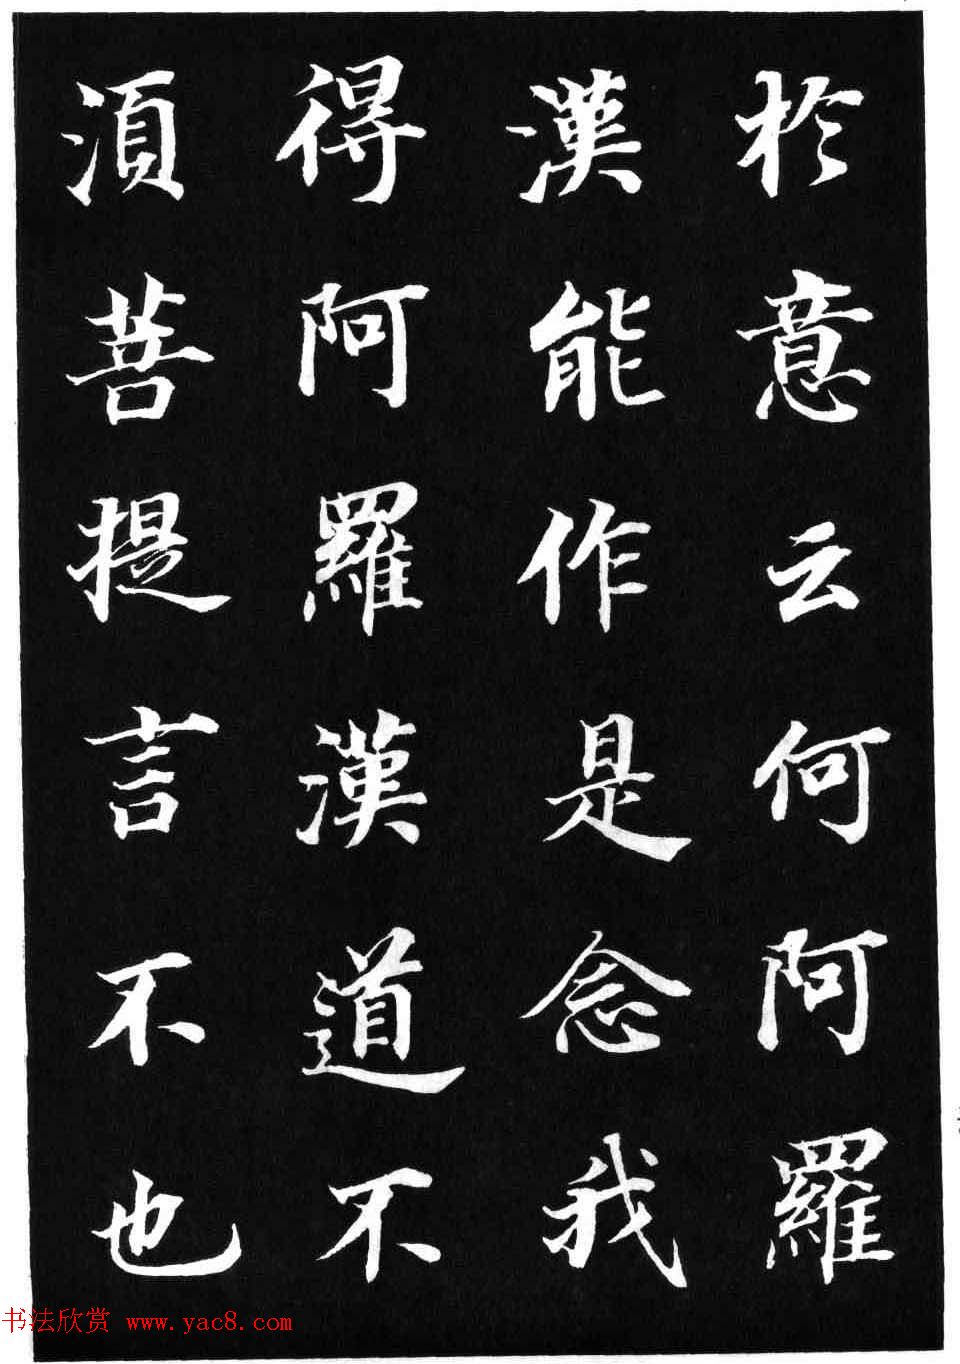 於意云何阿羅
漢能作是念我
得阿羅漢道不
湏菩提言不也
书法欣赏 www.yac8.com